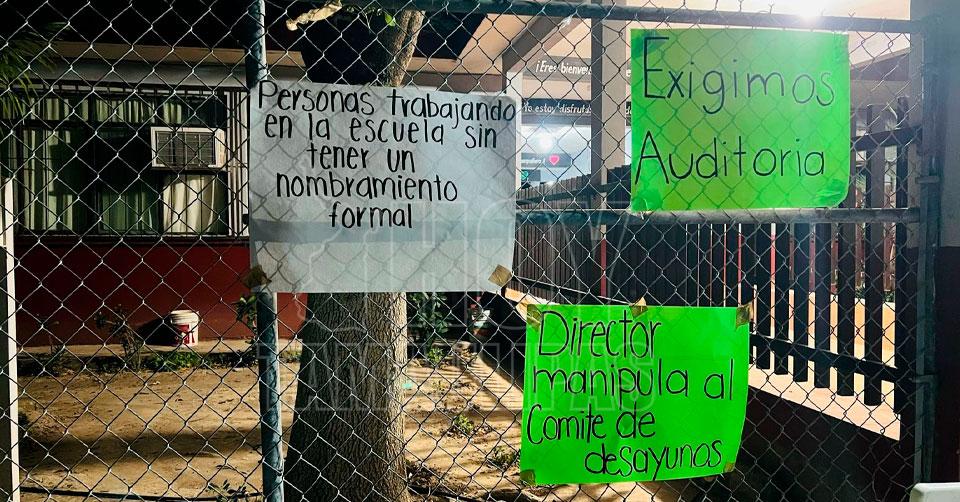 Personas trabajando
en la escuela sin
tener un
nombramiento
formal
¡Eres bienven
Exigimos
Auditoria
Director
manipula al
Comite de
desayunos
HOY
TAMAULIPAS